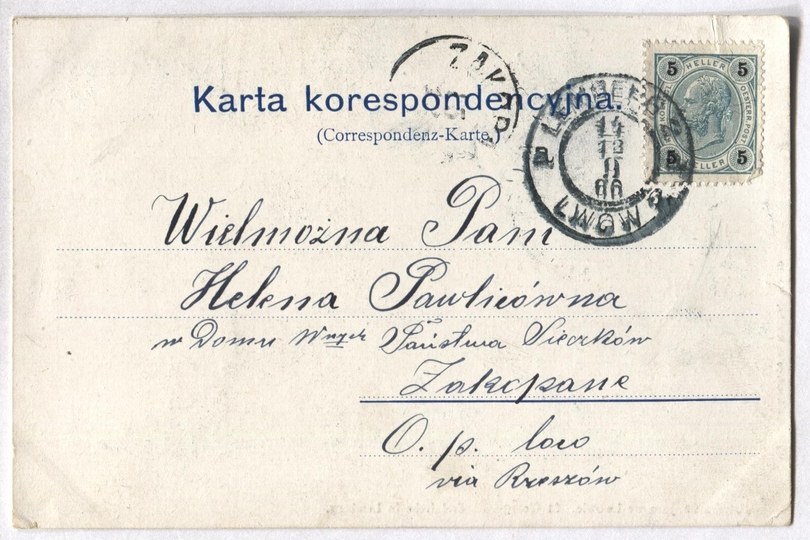 Karta korespondencyjna.
(Correspondenz-Karte.)
ZAKOP
5 HELLER 5
OESTERR. POST
5 HELLER 5
LEMBERG 2
14
13
9
00
LWÓW 2
Wielmożna Pani
Helena Pawlicówna
w Domu Wnych Państwa Sieczków
Zakopane
O. p. loco
via Rzeszów